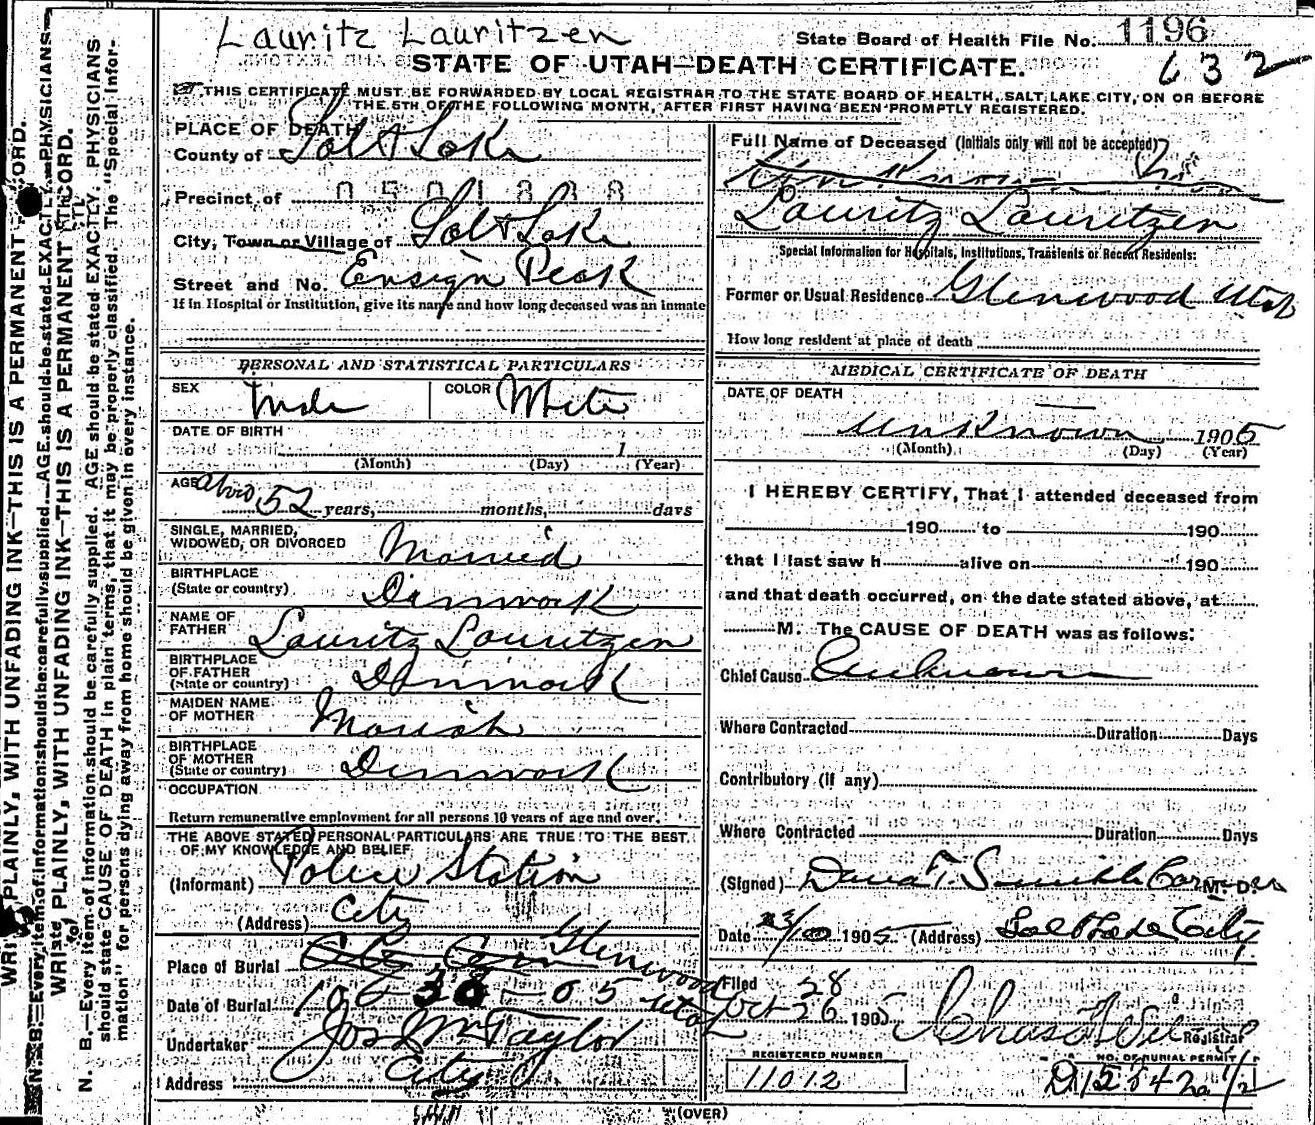 Lauritz Lauritzen
State Board of Health File No. 1196
632
STATE OF UTAH—DEATH CERTIFICATE.
THIS CERTIFICATE MUST BE FORWARDED BY LOCAL REGISTRAR TO THE STATE BOARD OF HEALTH, SALT LAKE CITY, ON OR BEFORE
THE 5TH OF THE FOLLOWING MONTH, AFTER FIRST HAVING BEEN PROMPTLY REGISTERED.
PLACE OF DEATH
County of Salt Lake
Precinct of 0501838
City, Town or Village of Salt Lake
Street and No. Ensign Peak
If in Hospital or Institution, give its name and how long deceased was an inmate
PERSONAL AND STATISTICAL PARTICULARS
SEX Male COLOR White
DATE OF BIRTH
1
(Month) (Day) (Year)
AGE About 52 years, months, days
SINGLE, MARRIED,
WIDOWED, OR DIVORCED Married
BIRTHPLACE
(State or country) Denmark
NAME OF
FATHER Lauritz Lauritzen
BIRTHPLACE
OF FATHER
(State or country) Denmark
MAIDEN NAME
OF MOTHER Mariah
BIRTHPLACE
OF MOTHER
(State or country) Denmark
OCCUPATION
Return remunerative employment for all persons 10 years of age and over.
THE ABOVE STATED PERSONAL PARTICULARS ARE TRUE TO THE BEST
OF MY KNOWLEDGE AND BELIEF
(Informant) Police Station
(Address) City
Place of Burial Glenwood Utah
Date of Burial
Undertaker Jos Wm Taylor
Address City
Full Name of Deceased (Initials only will not be accepted)
Lauritz Lauritzen
Special Information for Hospitals, Institutions, Transients or Recent Residents:
Former or Usual Residence Glenwood Utah
How long resident at place of death
MEDICAL CERTIFICATE OF DEATH
DATE OF DEATH
Unknown 1905
(Month) (Day) (Year)
I HEREBY CERTIFY, That I attended deceased from
190 to 190
that I last saw h alive on 190
and that death occurred, on the date stated above, at
M. The CAUSE OF DEATH was as follows:
Chief Cause Unknown
Where Contracted Duration Days
Contributory (if any)
Where Contracted Duration Days
(Signed) Dana T. Smith Cor M. D.
Date 23/10 1905 (Address) Salt Lake City
Filed 28
Oct 26 1905
Registrar
REGISTERED NUMBER
11012
NO. OF BURIAL PERMIT
(OVER)
WRITE PLAINLY, WITH UNFADING INK—THIS IS A PERMANENT RECORD.
N. B.—Every item of information should be carefully supplied. AGE should be stated EXACTLY. PHYSICIANS
WRITE PLAINLY, WITH UNFADING INK—THIS IS A PERMANENT RECORD.
N. B.—Every item of information should be carefully supplied. AGE should be stated EXACTLY. PHYSICIANS
should state CAUSE OF DEATH in plain terms, that it may be properly classified. The "Special Infor-
mation" for persons dying away from home should be given in every instance.